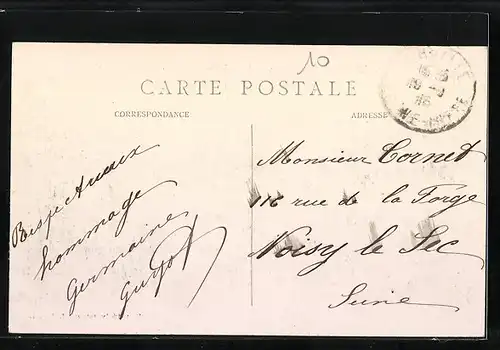 10
CARTE POSTALE
CORRESPONDANCE
ADRESSE
Respectueux
hommage
Germaine
Monsieur Cornet
116 rue de la Forge
Noisy le Sec
Seine